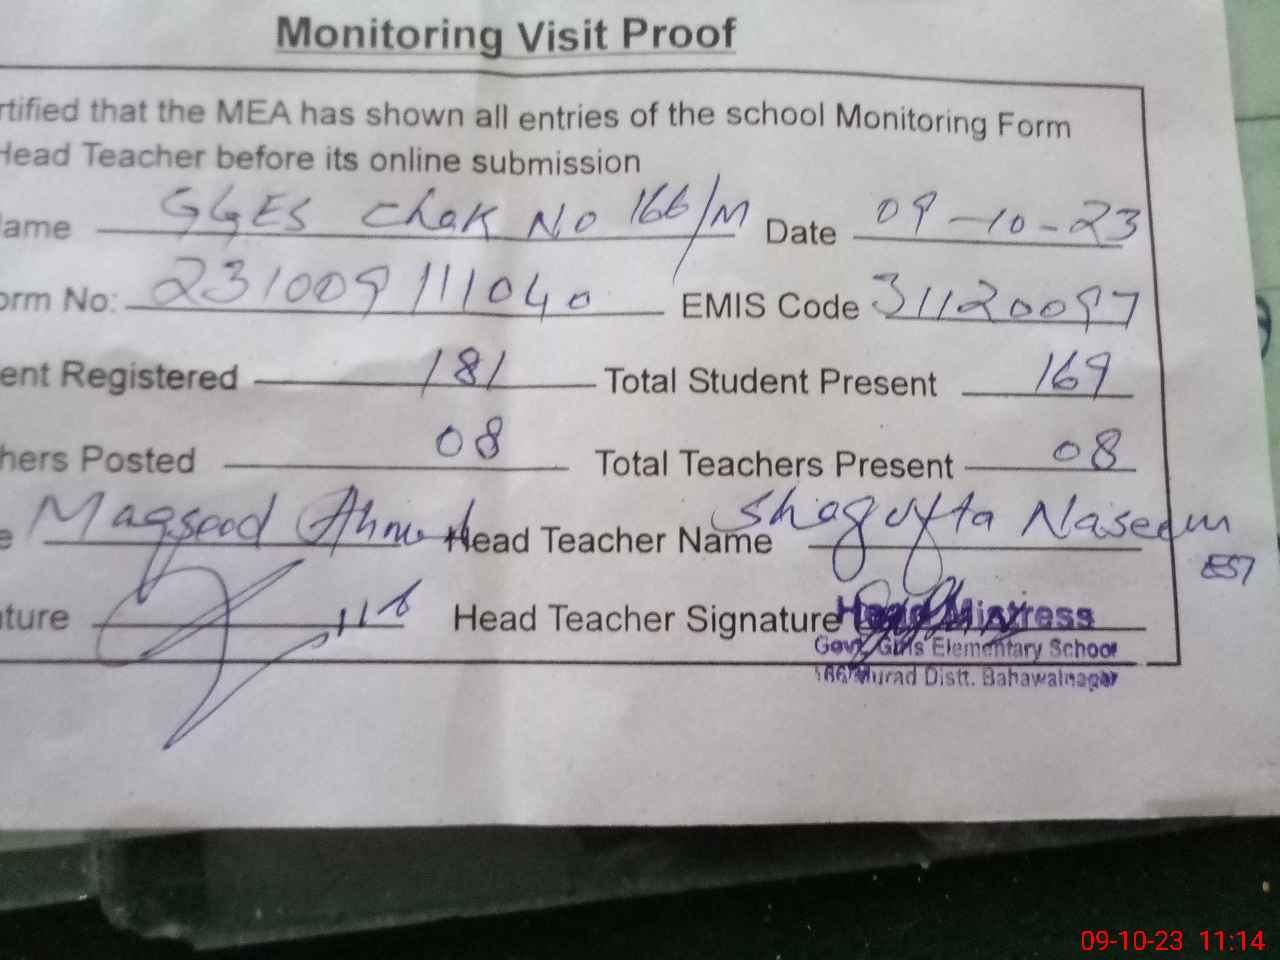 Monitoring Visit Proof
rtified that the MEA has shown all entries of the school Monitoring Form
Head Teacher before its online submission
ame GGES Chak No 166/M Date 09-10-23
orm No: 231009111040 EMIS Code 31120097
ent Registered 181 Total Student Present 169
hers Posted 08 Total Teachers Present 08
e Maqsood Ahmed Head Teacher Name Shagufta Naseem
EST
ture 116 Head Teacher Signature Head Mistress
Govt. Girls Elementary School
166/Murad Distt. Bahawalnagar
09-10-23 11:14